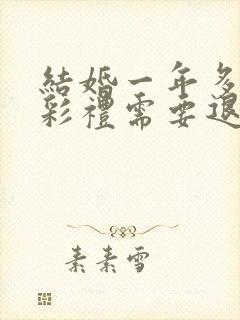 結婚一年多
彩禮需要退
素素雪